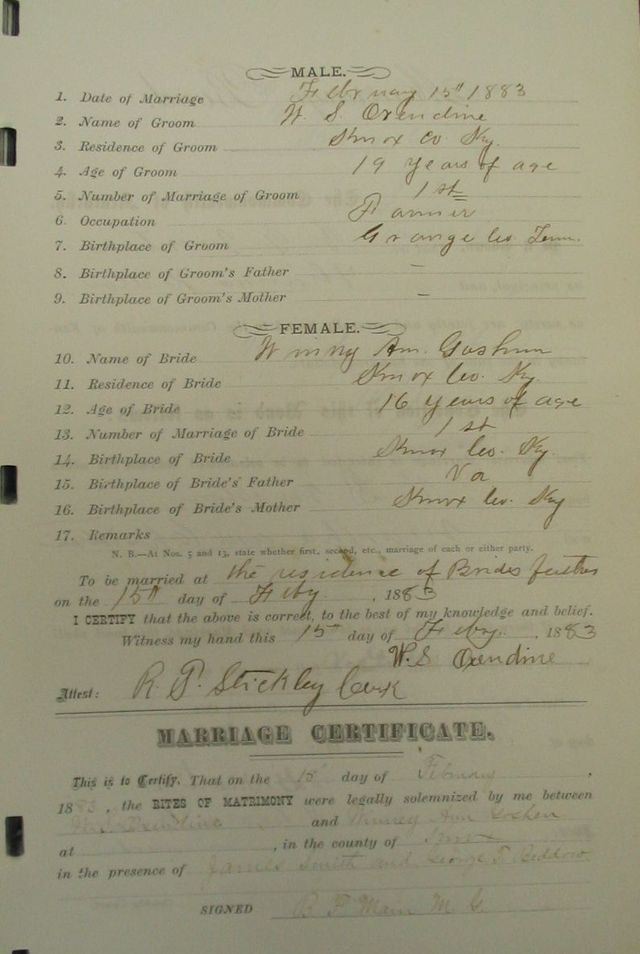 MALE.
1. Date of Marriage February 15th 1883
2. Name of Groom W. S. Oxendine
3. Residence of Groom Knox Co Ky.
4. Age of Groom 19 years of age
5. Number of Marriage of Groom 1st
6. Occupation Farmer
7. Birthplace of Groom Grange Co. Tenn.
8. Birthplace of Groom's Father –
9. Birthplace of Groom's Mother –
FEMALE.
10. Name of Bride Ann.
11. Residence of Bride Knox Co. Ky.
12. Age of Bride 16 years of age
13. Number of Marriage of Bride 1st
14. Birthplace of Bride Knox Co. Ky.
15. Birthplace of Bride's Father Va
16. Birthplace of Bride's Mother Knox Co. Ky
17. Remarks
N. B.—At Nos. 5 and 13, state whether first, second, etc., marriage of each or either party.
To be married at the residence of Brides father
on the 15th day of Feby. , 1883
I CERTIFY that the above is correct, to the best of my knowledge and belief.
Witness my hand this 15th day of Feby. , 1883
W. S. Oxendine
Attest: R. P. Stickley Clerk
MARRIAGE CERTIFICATE.
This is to Certify, That on the 15 day of February ,
1883, the RITES OF MATRIMONY were legally solemnized by me between
and Ann
at , in the county of Knox
in the presence of James Smith and George T. Beddow
SIGNED B F Main M. G.